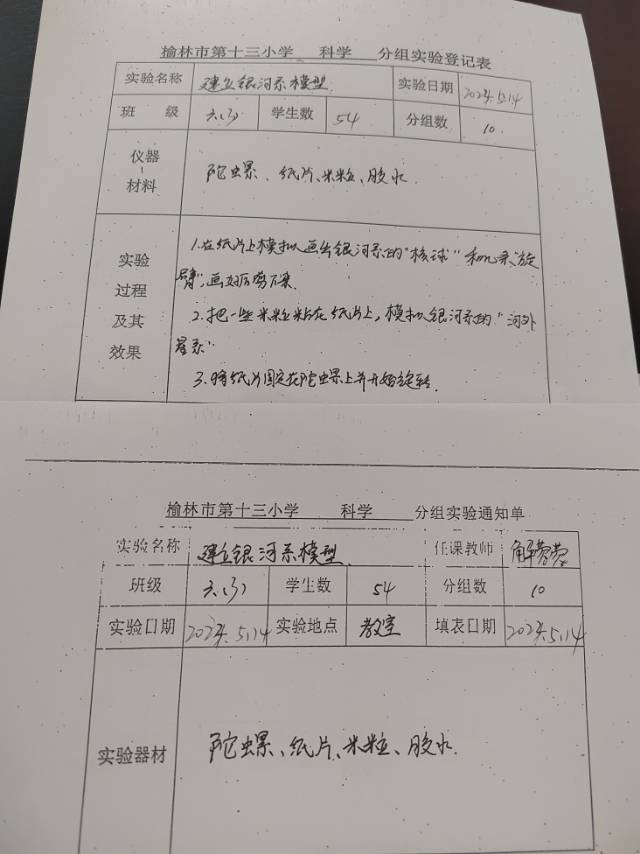 榆林市第十三小学 科学 分组实验登记表
实验名称 建立银河系模型 实验日期 2024.5.14
班 级 六(3) 学生数 54 分组数 10
仪器
材料 陀螺、纸片、米粒、胶水
实验
过程
及其
效果
1.在纸片上模拟画出银河系的"核球"和几条"旋
臂",画好后剪下来.
2.把一些米粒粘在纸片上,模拟银河系的"河外
星系"
3.将纸片固定在陀螺上并开始旋转.
榆林市第十三小学 科学 分组实验通知单
实验名称 建立银河系模型. 任课教师
班级 六(3) 学生数 54 分组数 10
实验日期 2024.5.14 实验地点 教室 填表日期 2024.5.14
实验器材 陀螺、纸片、米粒、胶水.